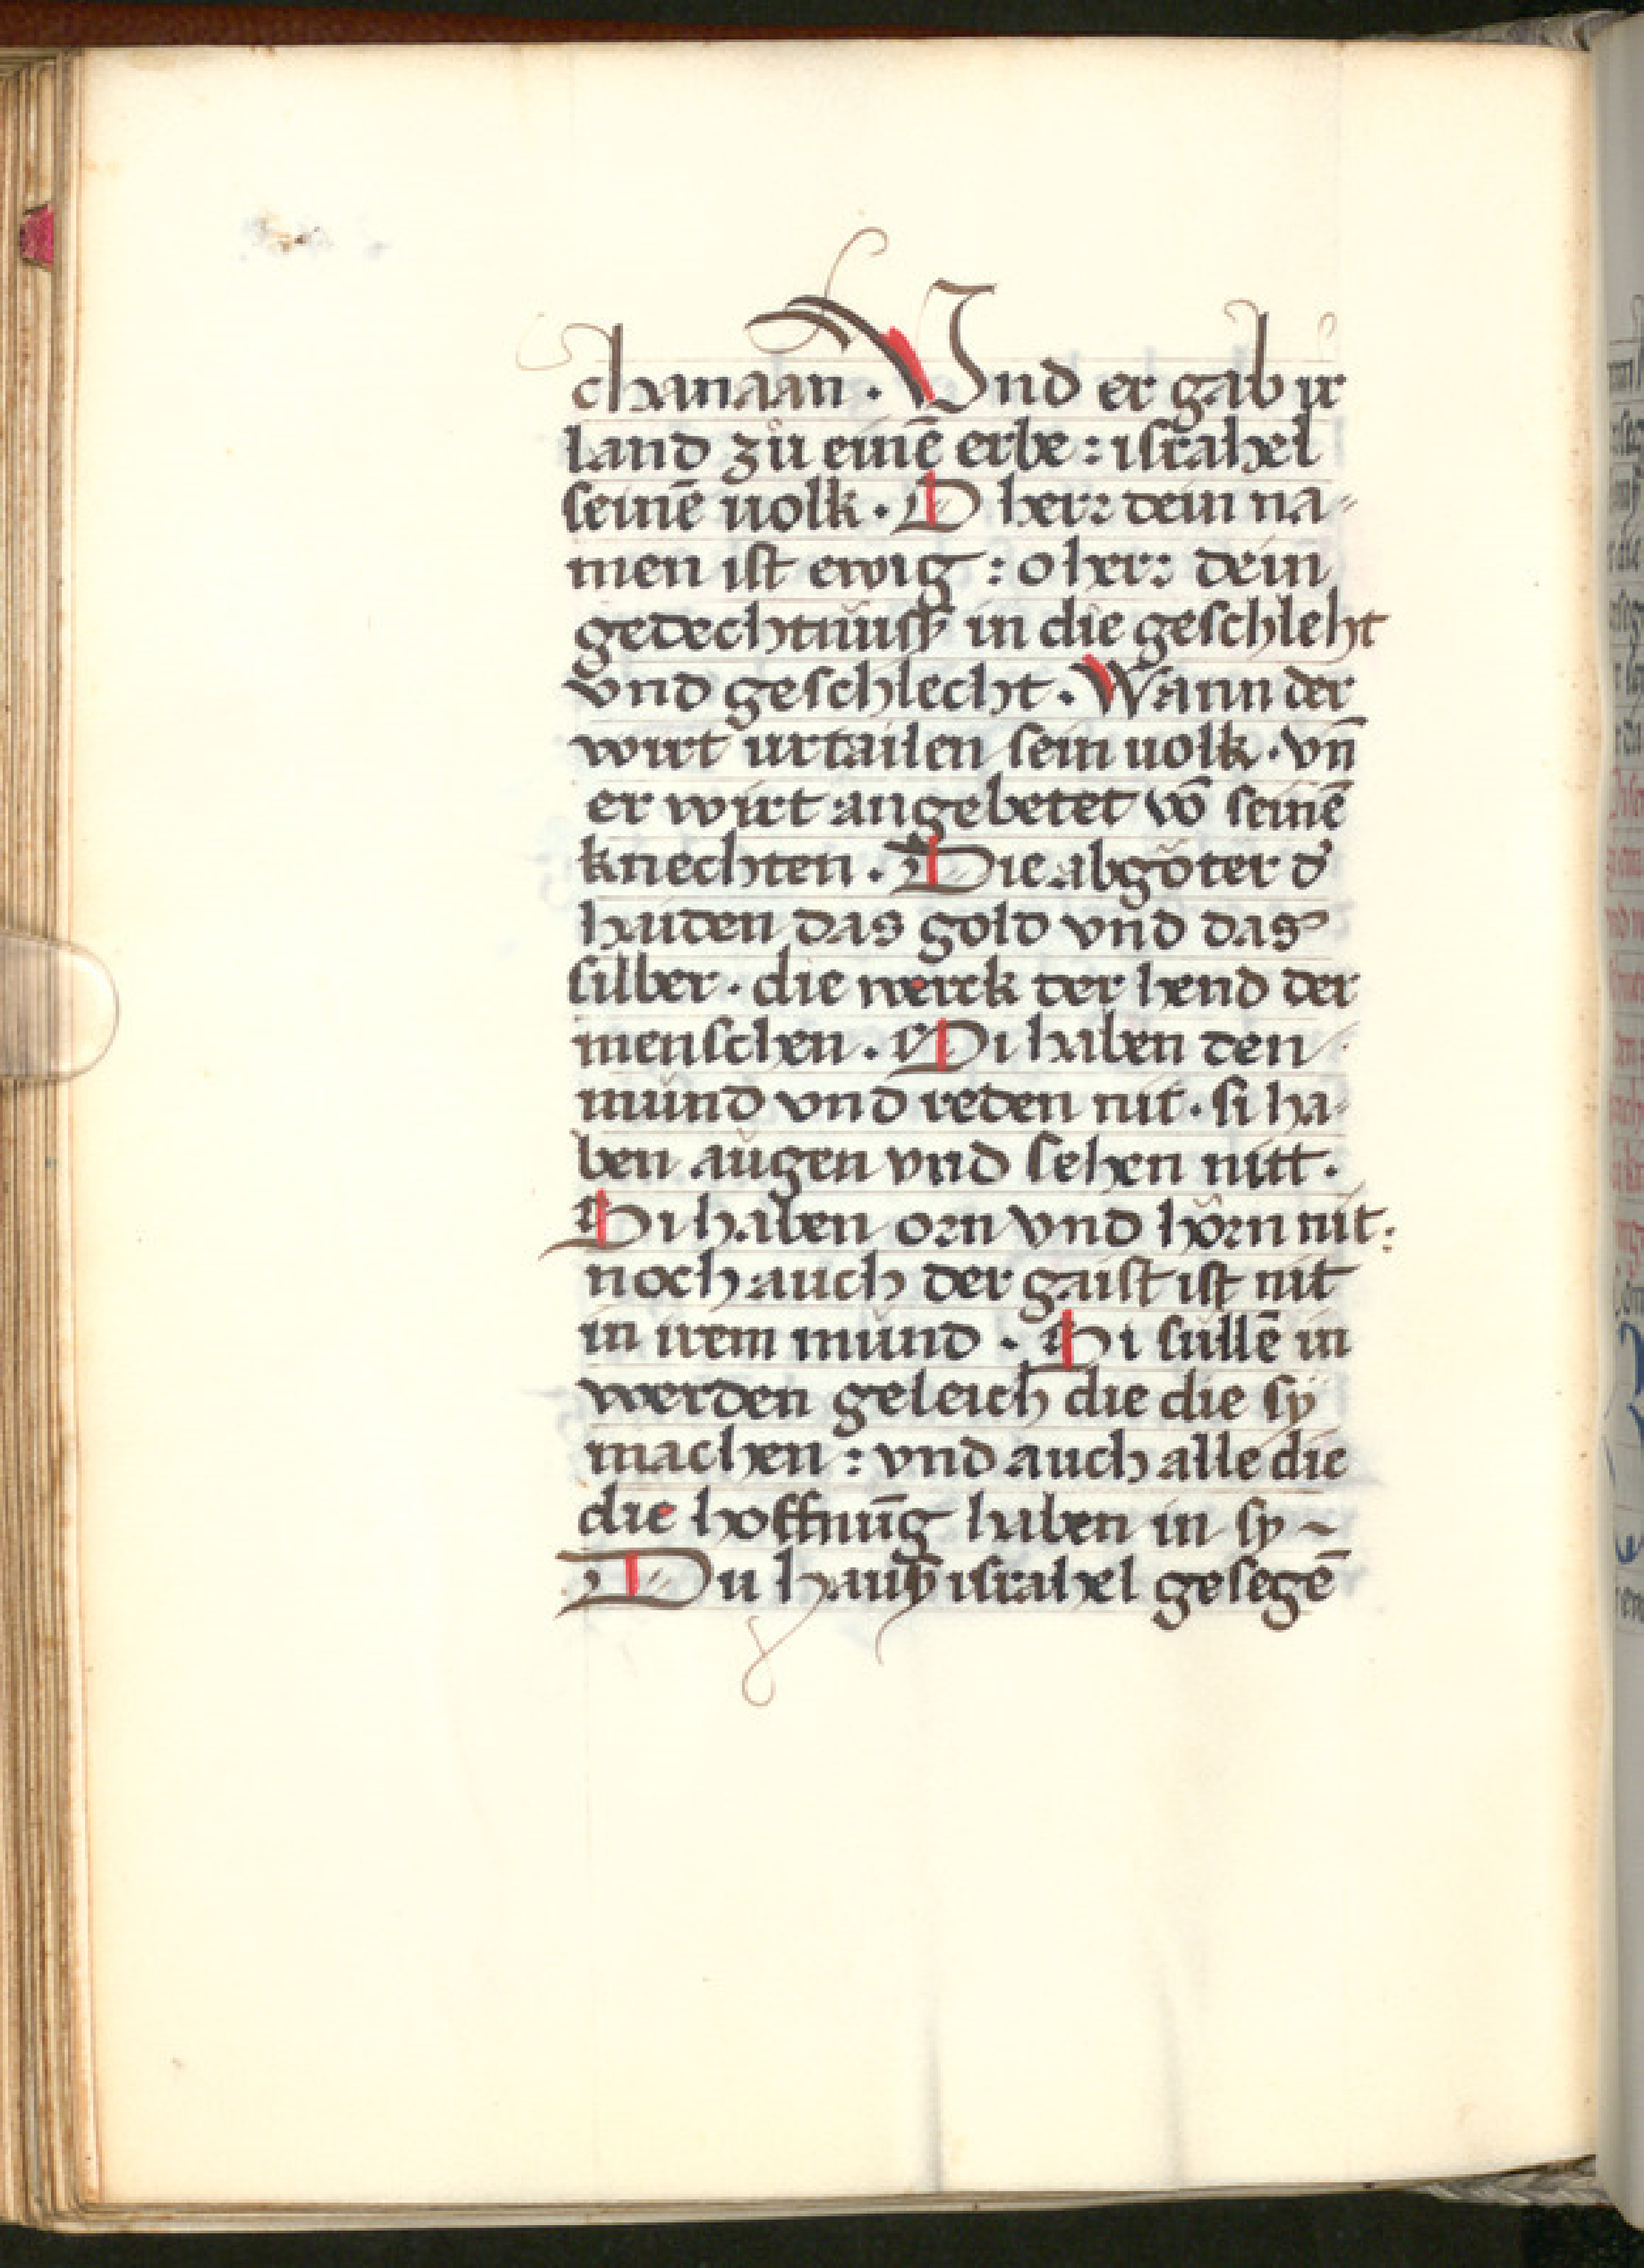 chanaan · Vnd er gab ir
land zů einē erbe : israhel
seinē uolk · O herr dein na⸗
men ist ewig : o herr dein
gedechtnuß in die geschleht
vnd geschlecht · Wann der
wirt urtailen sein uolk · vn̄
er wirt angebetet vō seinē
knechten · Die abgöter d'
haiden das gold vnd das
silber · die werck der hend der
menschen · Si haben den
mund vnd reden nit · si ha⸗
ben augen vnd sehen nitt ·
Si haben orn vnd hörn nit :
noch auch der gaist ist nit
in irem mund · Si sullē in
werden geleich die die sy
machen : vnd auch alle die
die hoffnūg haben in sy ~
Du hauß israhel gesegē